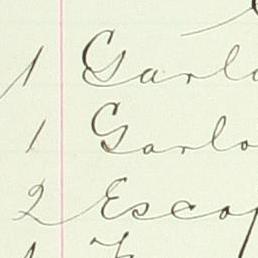 1 Garl
1 Garlo
2 Esco
1